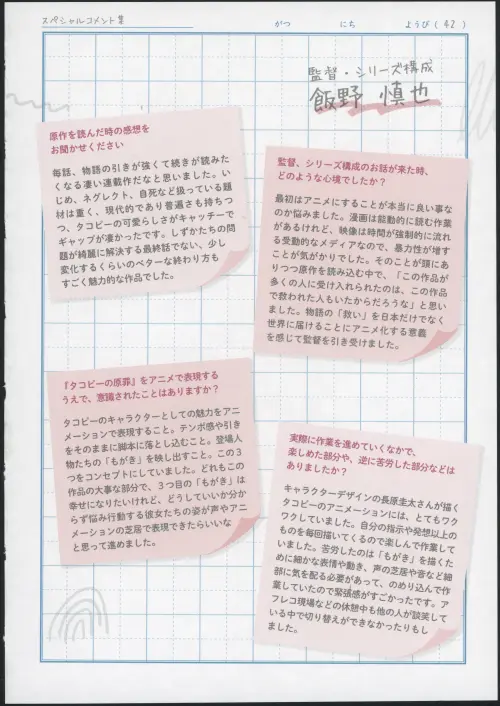 スペシャルコメント集
がつ にち ようび(42)
監督・シリーズ構成
飯野 慎也
原作を読んだ時の感想を
お聞かせください
毎話、物語の引きが強くて続きが読みた
くなる凄い連載作だなと思いました。い
じめ、ネグレクト、自死など扱っている題
材は重く、現代的であり普遍さも持ちつ
つ、タコピーの可愛らしさがキャッチーで
ギャップが凄かったです。しずかたちの問
題が綺麗に解決する最終話でない、少し
変化するくらいのベターな終わり方も
すごく魅力的な作品でした。
監督、シリーズ構成のお話が来た時、
どのような心境でしたか?
最初はアニメにすることが本当に良い事な
のか悩みました。漫画は能動的に読む作業
があるけれど、映像は時間が強制的に流れ
る受動的なメディアなので、暴力性が増す
ことが気がかりでした。そのことが頭にあ
りつつ原作を読み込む中で、「この作品が
多くの人に受け入れられたのは、この作品
で救われた人もいたからだろうな」と思い
ました。物語の「救い」を日本だけでなく
世界に届けることにアニメ化する意義
を感じて監督を引き受けました。
『タコピーの原罪』をアニメで表現する
うえで、意識されたことはありますか?
タコピーのキャラクターとしての魅力をアニ
メーションで表現すること。テンポ感や引き
をそのままに脚本に落とし込むこと。登場人
物たちの「もがき」を映し出すこと。この3
つをコンセプトにしていました。どれもこの
作品の大事な部分で、3つ目の「もがき」は
幸せになりたいけれど、どうしていいか分か
らず悩み行動する彼女たちの姿が声やアニ
メーションの芝居で表現できたらいいな
と思って進めました。
実際に作業を進めていくなかで、
楽しめた部分や、逆に苦労した部分などは
ありましたか?
キャラクターデザインの長原圭太さんが描く
タコピーのアニメーションには、とてもワク
ワクしていました。自分の指示や発想以上の
ものを毎回描いてくるので楽しんで作業して
いました。苦労したのは「もがき」を描くた
めに細かな表情や動き、声の芝居や音など細
部に気を配る必要があって、のめり込んで作
業していたので緊張感がすごかったです。ア
フレコ現場などの休憩中も他の人が談笑して
いる中で切り替えができなかったりもし
ました。